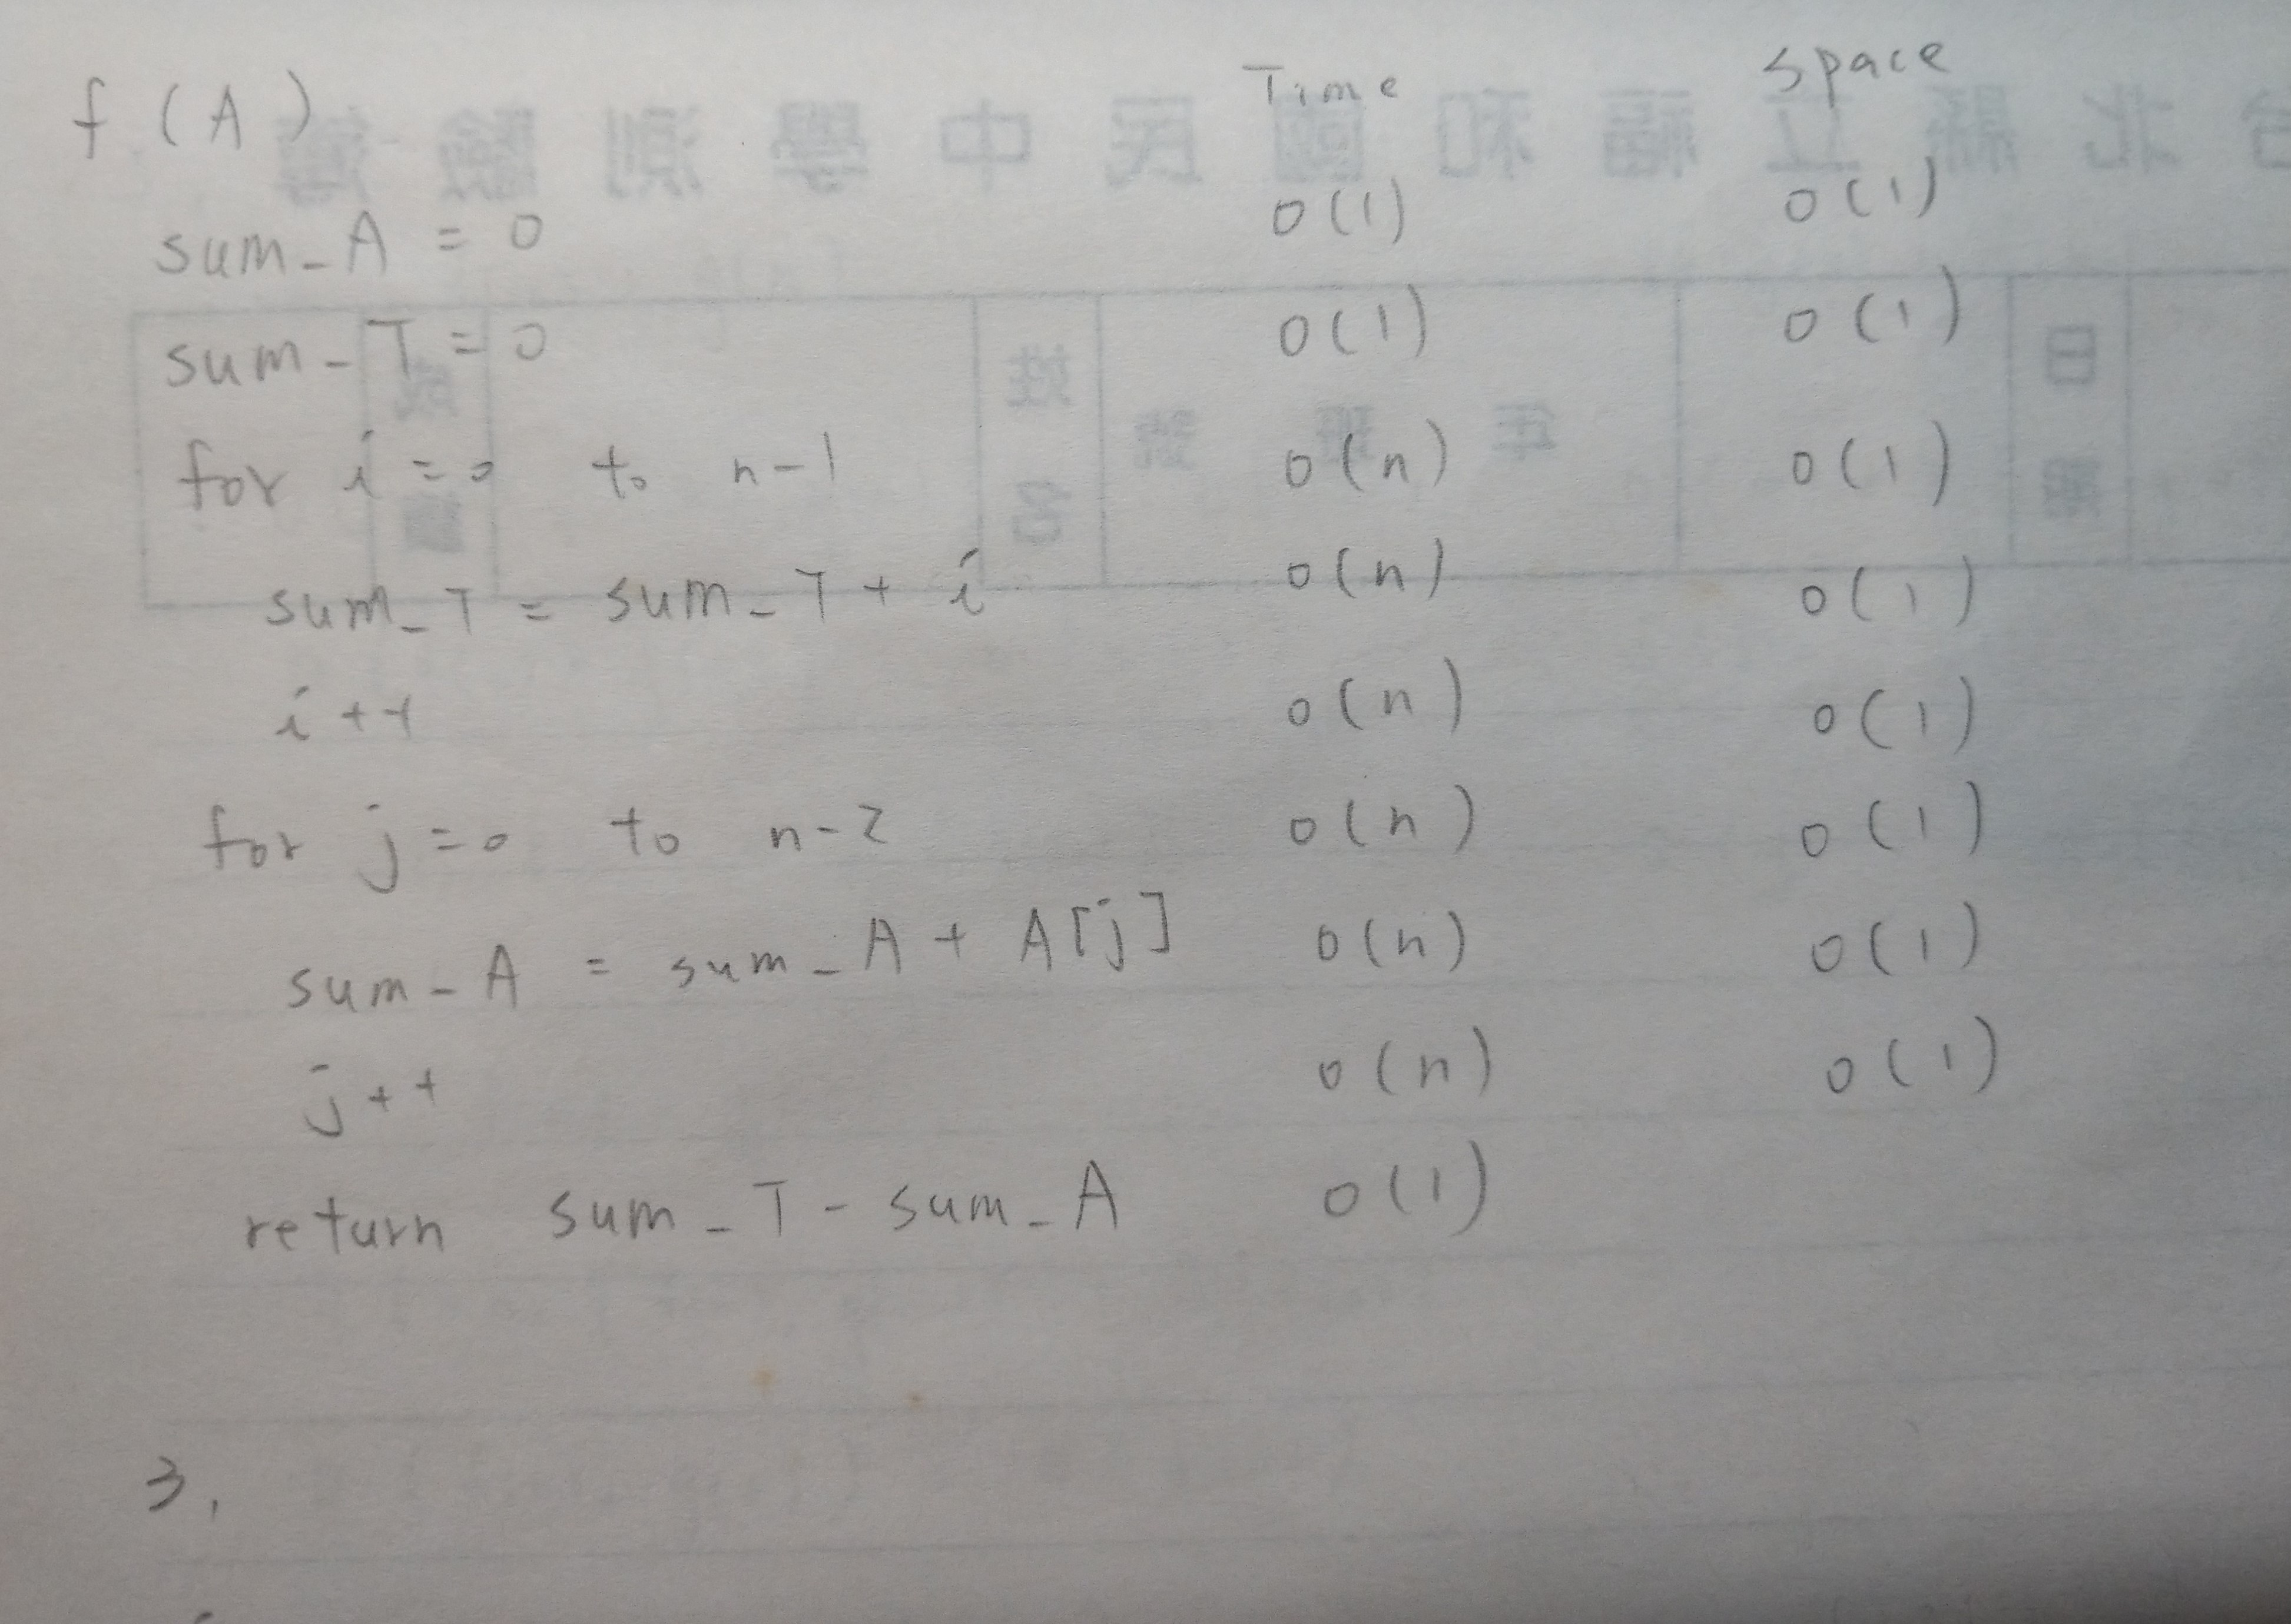 Time space
f(A)
台北縣立福和國民中學測驗簿
sum_A = 0 O(1) O(1)
sum_T = 0 O(1) O(1)
成績 姓名 年 班 號 日期
for i = 0 to n-1 O(n) O(1)
sum_T = sum_T + i O(n) O(1)
i++ O(n) O(1)
for j = 0 to n-2 O(n) O(1)
sum_A = sum_A + A[j] O(n) O(1)
j++ O(n) O(1)
return sum_T - sum_A O(1)
3.